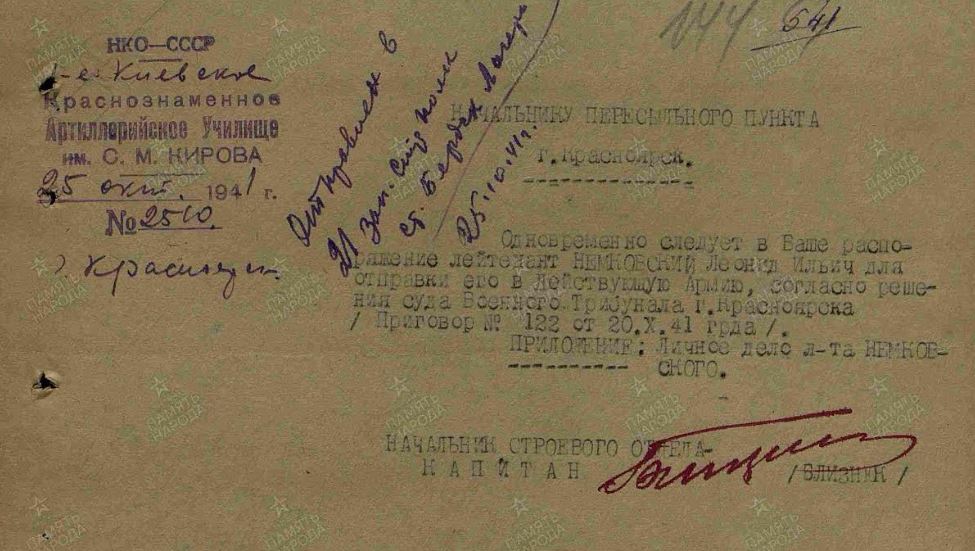 144
641
НКО—СССР
1-е Киевское
Краснознаменное
Артиллерийское Училище
им. С. М. КИРОВА
25 окт. 1941 г.
№ 2510.
г Красноярск
Отправлен в
21 Зап.
ст. Бердск Лагерь
25.10.41г.
НАЧАЛЬНИКУ ПЕРЕСЫЛЬНОГО ПУНКТА
г. Красноярск.
Одновременно следует в Ваше распо-
ряжение лейтенант НЕМКОВСКИЙ Леонид Ильич для
отправки его в Действующую Армию, согласно реше-
ния суда Военного Трибунала г. Красноярска
/ Приговор № 122 от 20.X.41 грда /.
ПРИЛОЖЕНИЕ: Личное дело л-та НЕМКОВ-
СКОГО.
НАЧАЛЬНИК СТРОЕВОГО ОТДЕЛА-
КАПИТАН /БЛИЗНЕК/
ПАМЯТЬ НАРОДА